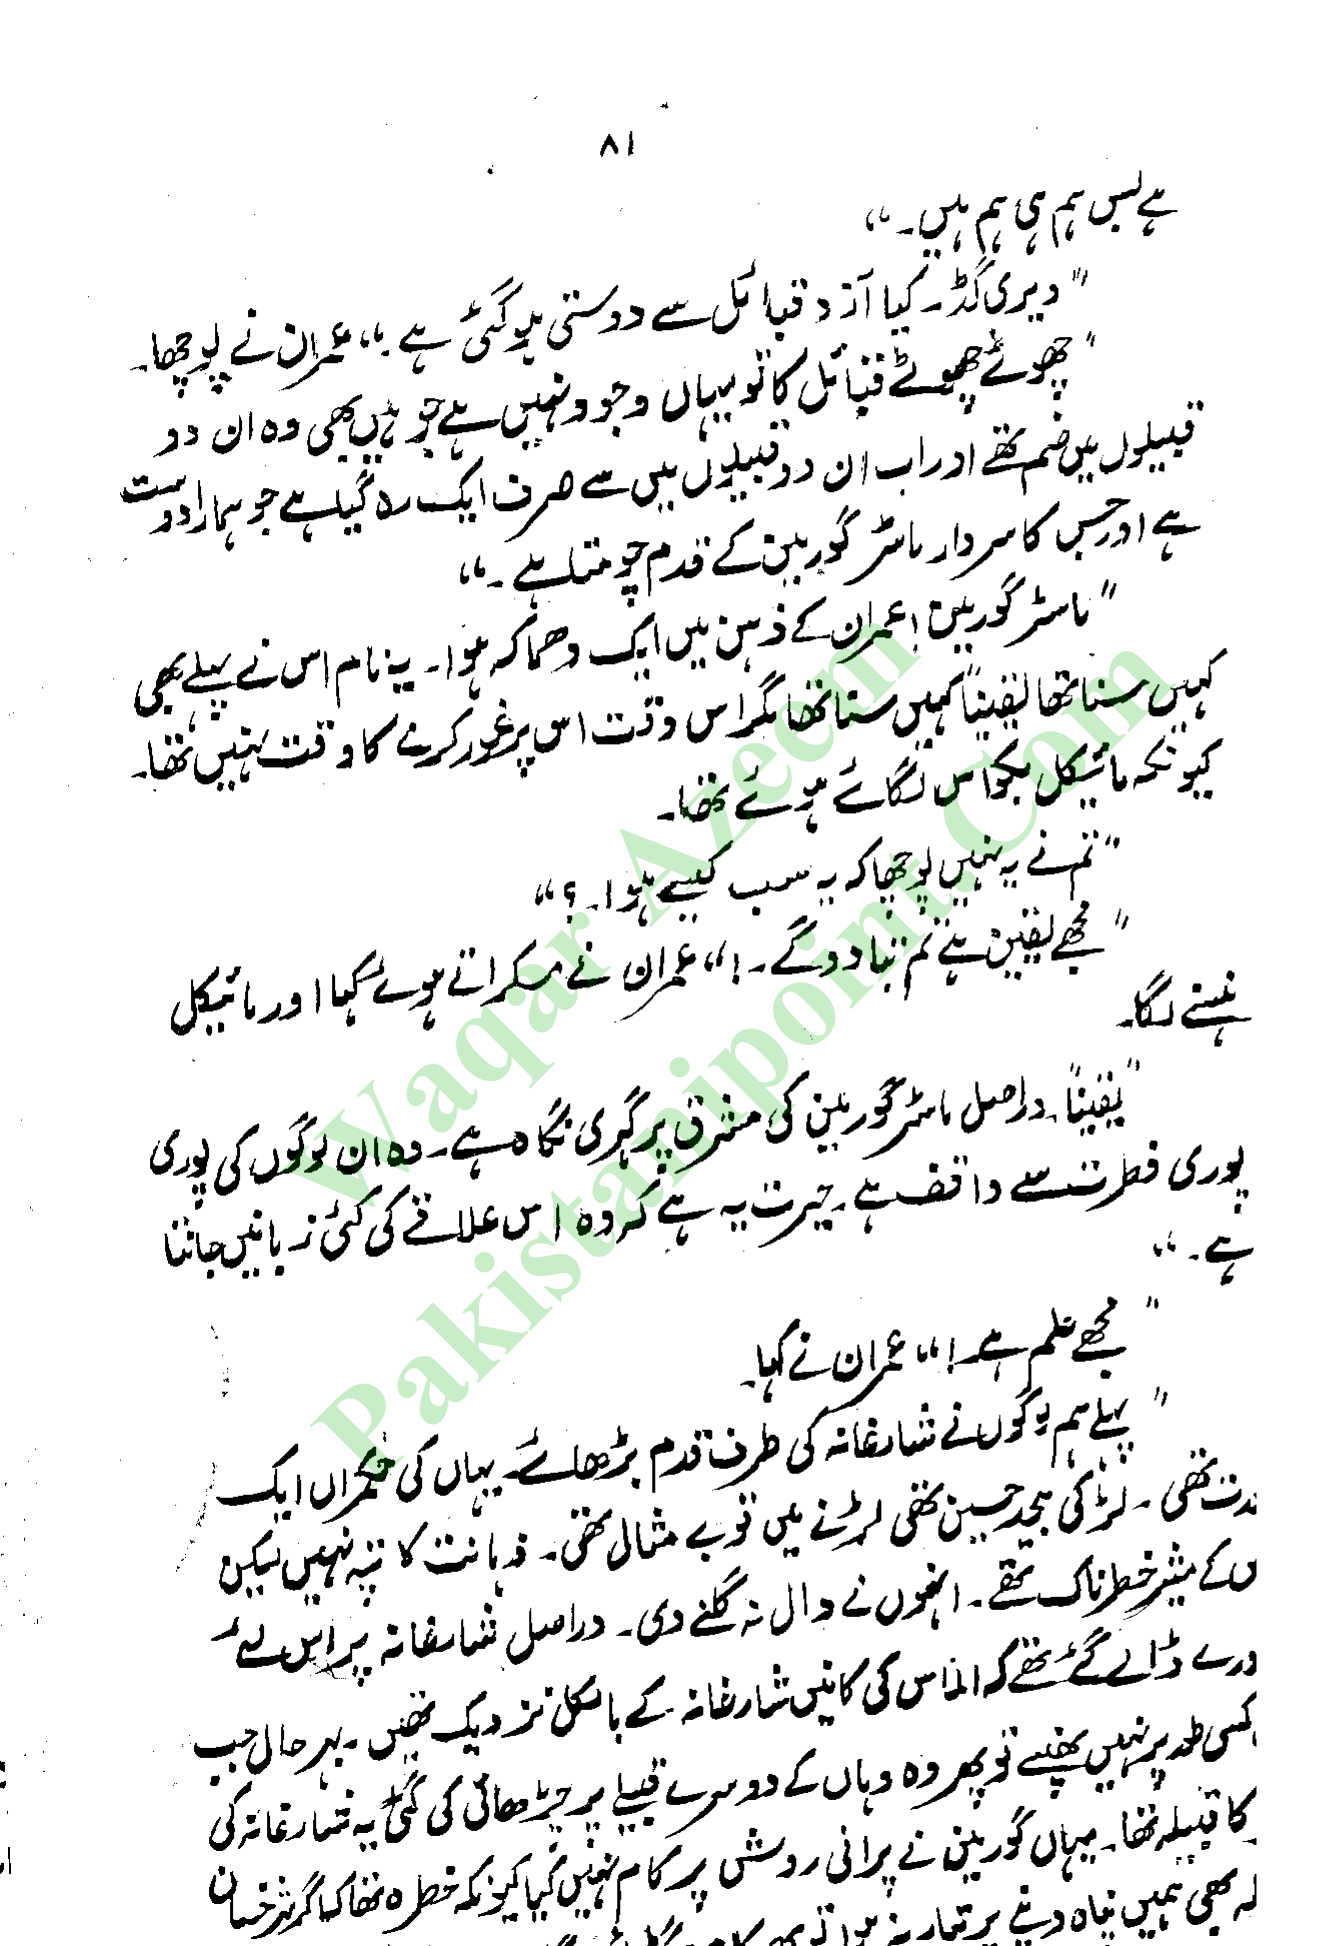 ۸۱
ہے بس ہم ہی ہم ہیں۔“
”ویری گڈ۔ کیا آزاد قبائل سے دوستی ہو گئی ہے۔“ عمران نے پوچھا۔
”چھوٹے چھوٹے قبائل کا تو یہاں وجود نہیں ہے جو ہیں بھی وہ ان دو
قبیلوں میں ضم تھے اور اب ان دو قبیلوں میں سے صرف ایک رہ گیا ہے جو ہمارا دوست
ہے اور جس کا سردار ماسٹر گوربین کے قدم چومتا ہے۔“
”ماسٹر گوربین! عمران کے ذہن میں ایک دھماکہ ہوا۔ یہ نام اس نے پہلے بھی
کہیں سنا تھا یقیناً کہیں سنا تھا مگر اس وقت اس پر غور کرنے کا وقت نہیں تھا۔
کیونکہ مائیکل بکواس لگائے ہوئے تھا۔
”تم نے یہ نہیں پوچھا کہ یہ سب کیسے ہوا۔؟“
”مجھے یقین ہے تم بتا دو گے۔!“ عمران نے مسکراتے ہوئے کہا اور مائیکل
ہنسنے لگا۔
”یقیناً۔ دراصل ماسٹر گوربین کی مشرق پر گہری نگاہ ہے۔ وہ ان لوگوں کی پوری
پوری فطرت سے واقف ہے۔ حیرت یہ ہے کہ وہ اس علاقے کی کئی زبانیں جانتا
ہے۔“
”مجھے علم ہے۔!“ عمران نے کہا۔
”پہلے ہم لوگوں نے شارغانہ کی طرف قدم بڑھائے۔ یہاں کی حکمراں ایک
تھی۔ لڑکی بیحد حسین تھی لڑنے میں تو بے مثال تھی۔ ذہانت کا پتہ نہیں لیکن
کے مشیر خطرناک تھے۔ انہوں نے دال نہ گلنے دی۔ دراصل شارغانہ پر اس لئے
ڈورے ڈالے گئے تھے کہ الماس کی کانیں شارغانہ کے بالکل نزدیک تھیں۔ بہرحال جب
کسی طور پر نہیں پھنسے تو پھر وہ وہاں کے دوسرے قبیلے پر چڑھائی کی گئی یہ شارغانہ کی
کا قبیلہ تھا۔ یہاں گوربین نے پرانی روش پر کام نہیں کیا کیونکہ خطرہ تھا کہ اگر
بھی ہمیں پناہ دینے پر تیار نہ ہوا تو پھر
Waqar Azeem
Pakistanipoint.Com